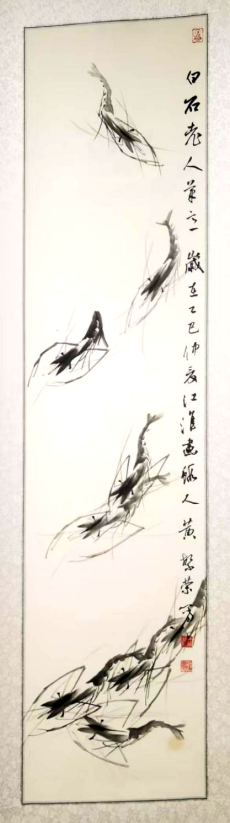 白石老人筆意 歲在乙巳仲夏江淮畫蝦人黃繁榮寫